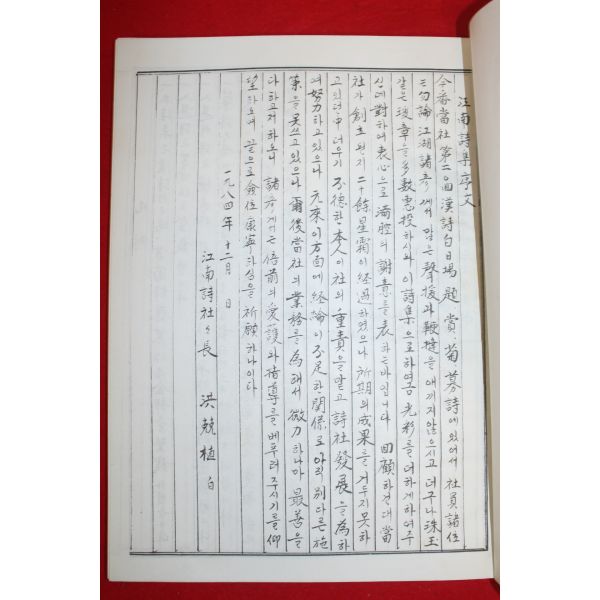 江南詩集序文
今番當社第二回漢詩白日場題賞菊募詩에있어서社員諸位
는勿論江湖諸彦께서많은聲援과鞭撻을애끼지않으시고더구나珠玉
같은瓊章을多數惠投하시와이詩集으로하여금光彩를더하게하여주
심에對하여衷心으로滿腔의謝意를表하는바입니다 回顧하건대當
社가創立된지二十餘星霜이經過하였으나所期의成果를거두지못하
고있더中더우기不德한本人이社의重責을맡고詩社發展을爲하
여努力하고있으나元來이方面에經綸이不足한關係로아직別다른施
策을못쓰고있으나爾後當社의業務를爲해서微力하나마最善을
다하고저하오니諸彦께서는倍前의愛護와指導를베푸러주시기를仰
望하오며끝으로僉位康寧하심을祈願하나이다
一九八四年 十二月 日
江南詩社々長 洪兢植 白